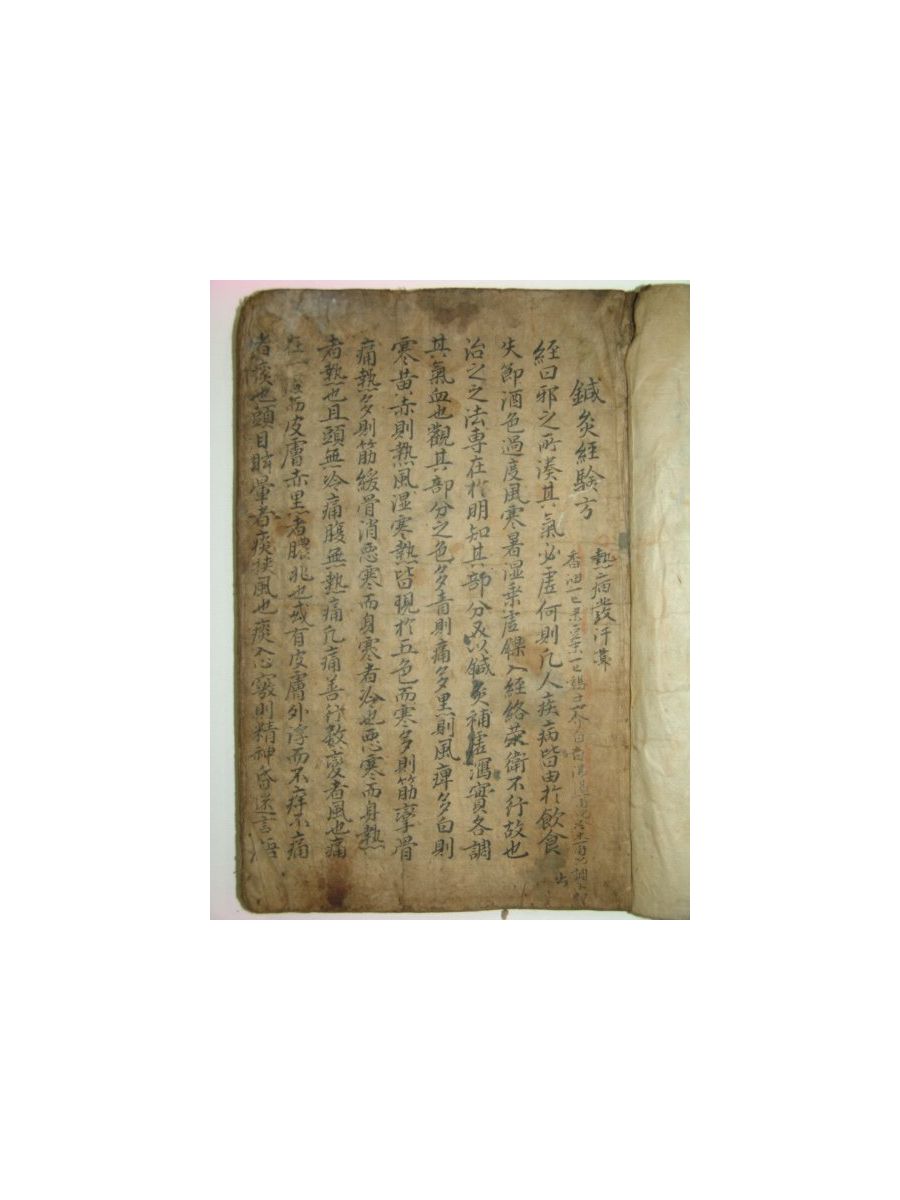 鍼灸經驗方
熱病發汗
香油一
經曰邪之所湊其氣必虛何則凡人疾病皆由於飮食
失節酒色過度風寒暑濕乘虛鑠入經絡荣衛不行故也
治之之法專在於明知其部分以鍼灸補虛瀉實各調
其氣血也觀其部分之色多青則痛多黑則風痺多白則
寒黃赤則熱風濕寒熱皆現於五色而寒多則筋攣骨
痛熱多則筋緩骨消惡寒而身寒者冷也惡寒而身熱
者熱也且頭無冷痛腹無熱痛凡痛善行數變者風也痛
在一處而皮膚赤黑者膿兆也或有皮膚外浮而不痒不痛
者痰也頭目眩暈者痰挾風也痰入心竅則精神昏迷言語